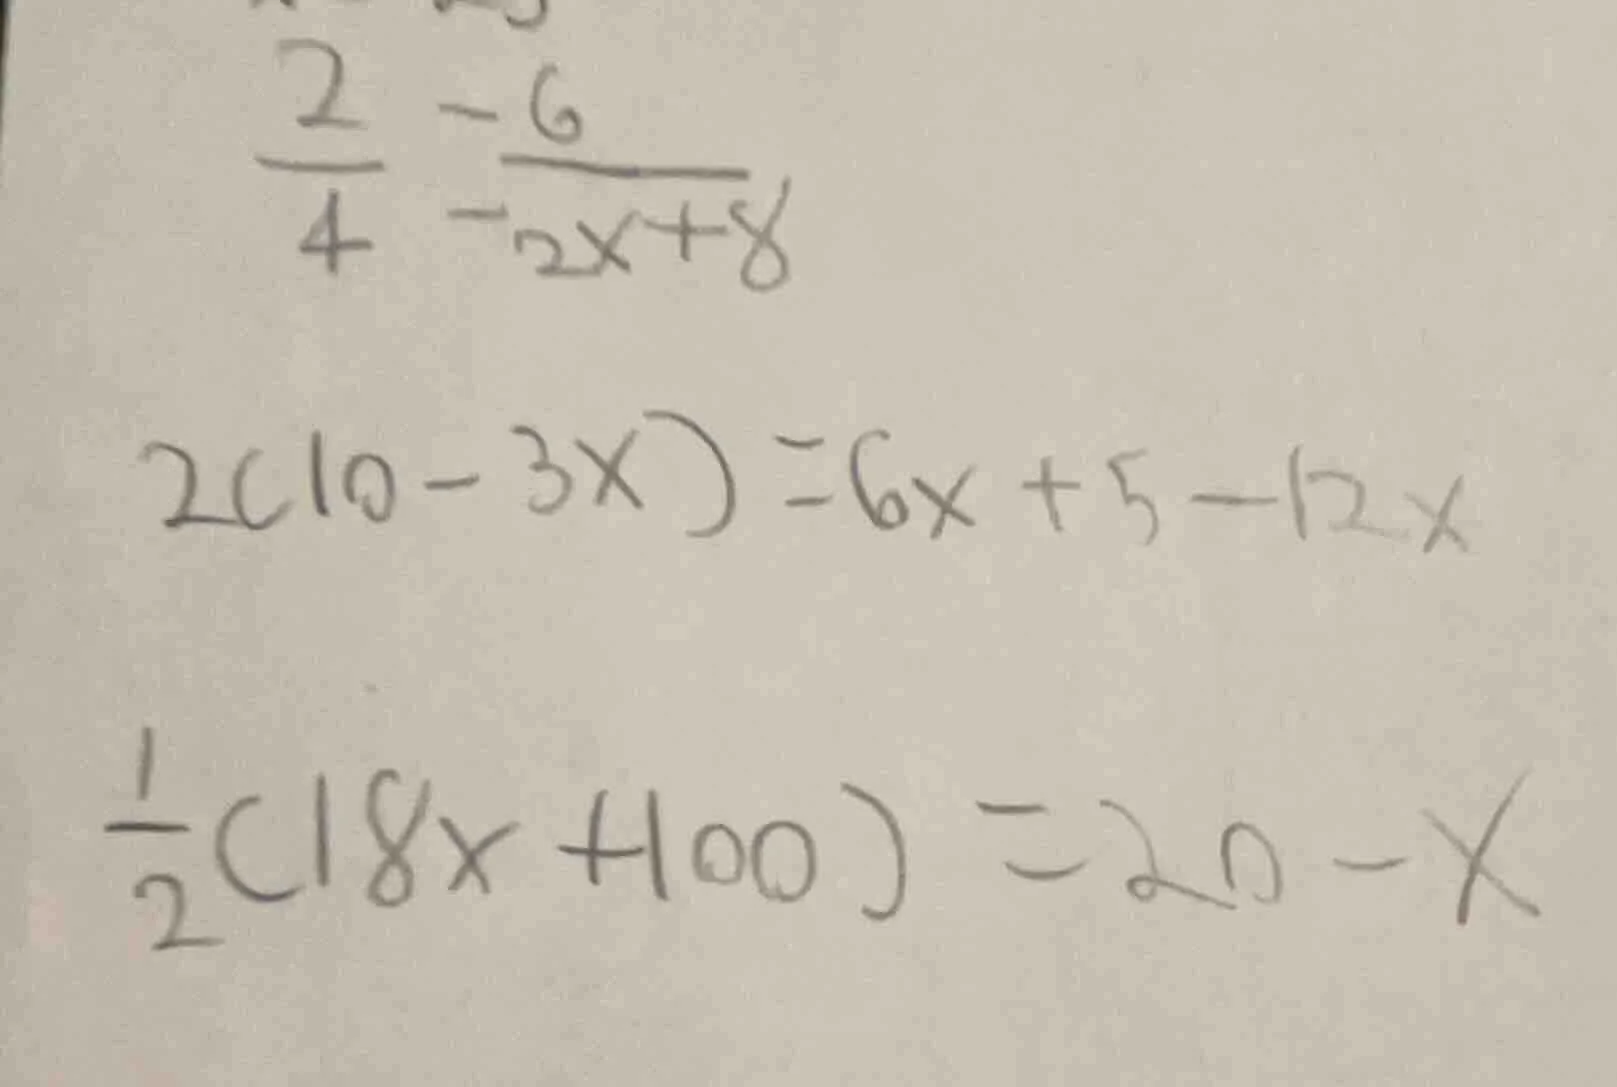 2/4 = 6/2x+8
2(10-3x)=6x+5-12x
1/2(18x+100)=20-x